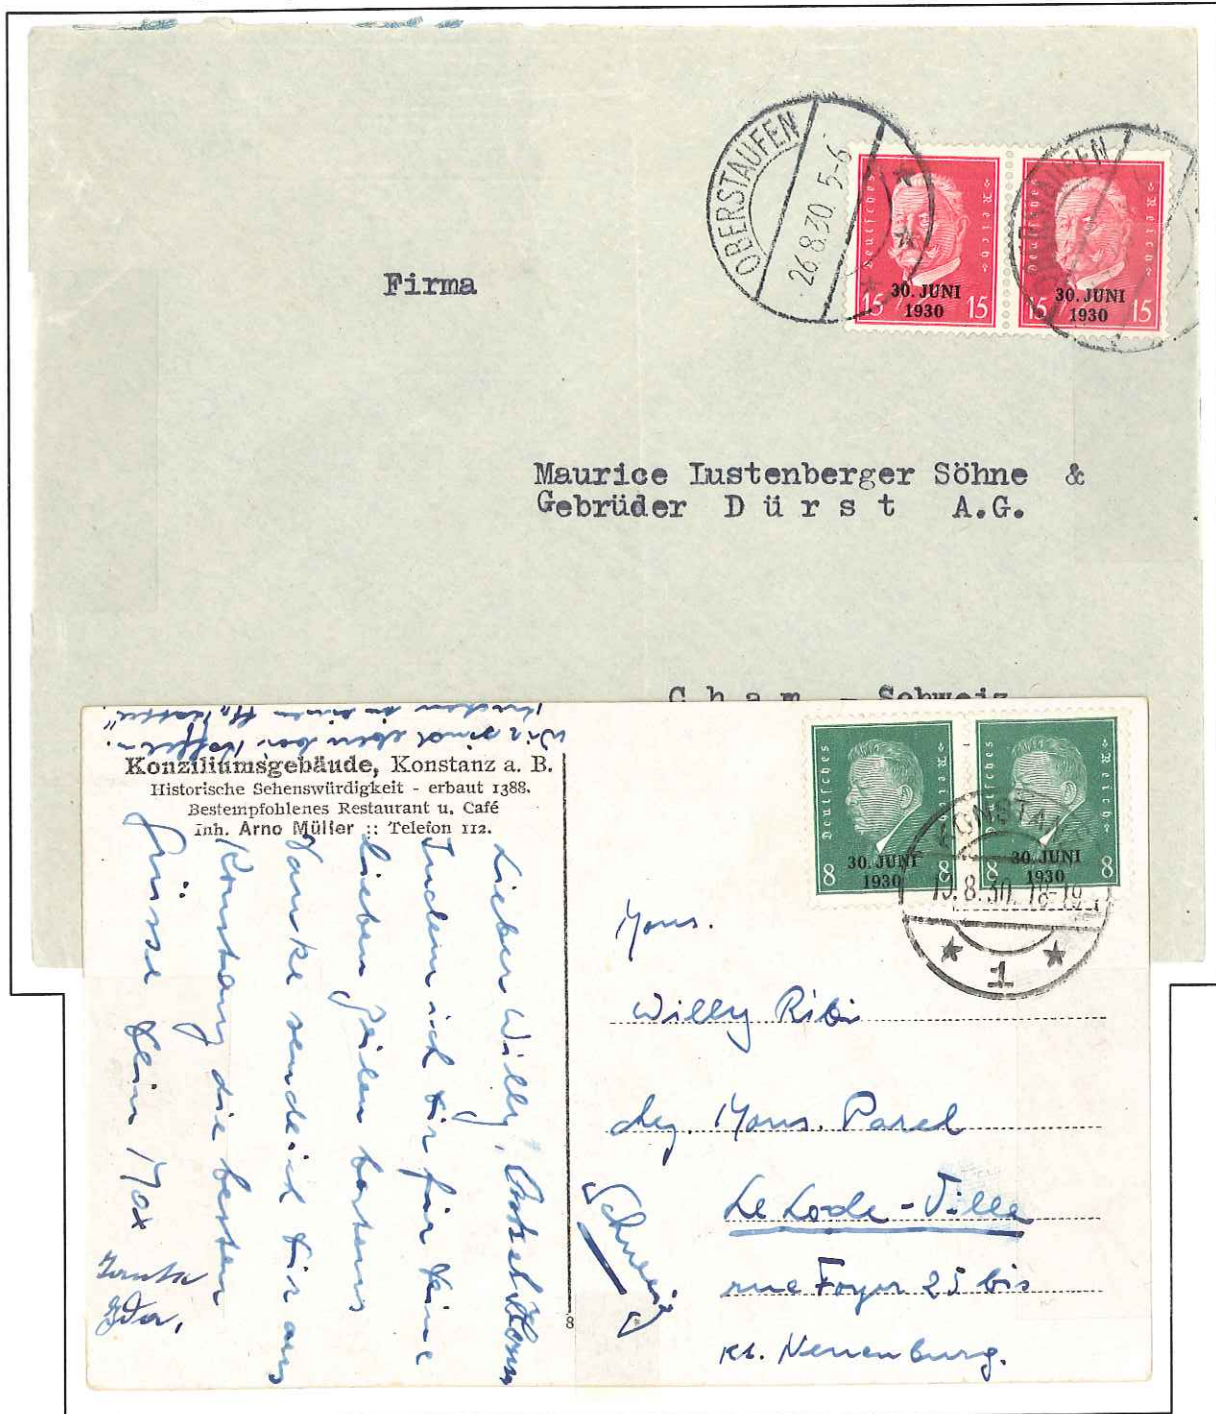 OBERSTAUFEN
26.8.30. 5-6
Deutsches Reich
15 15
30. JUNI
1930
Deutsches Reich
15 15
30. JUNI
1930
OBERSTAUFEN
Firma
Maurice Lustenberger Söhne &
Gebrüder D ü r s t A.G.
C h a m - Schweiz
Wir sind eben bei
Konziliumsgebäude, Konstanz a. B.
Historische Sehenswürdigkeit - erbaut 1388.
Bestempfohlenes Restaurant u. Café
Inh. Arno Müller :: Telefon 112.
Lieber Willy,
Indem ich Dir für Deine
lieben Zeilen bestens
danke sende ich Dir aus
Konstanz die besten
Grüsse Dein Max
Tante
Ida.
8
Deutsches Reich
8
30. JUNI
1930
Deutsches Reich
8
30. JUNI
1930
KONSTANZ
8.30. 18-19
1
Mons.
Willy Ribi
chez. Mons. Parel
Le Locle-Ville
rue Foyer 25 bis
Kt. Neuenburg.
Schweiz